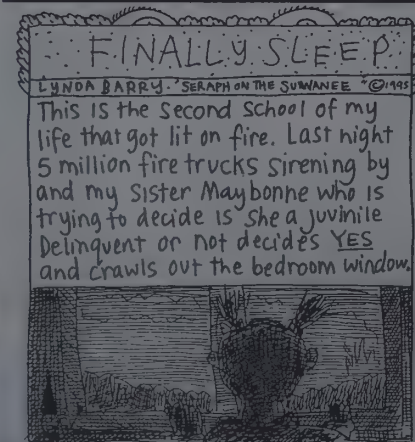 FINALLY SLEEP
LYNDA BARRY · "SERAPH ON THE SUWANEE" ©1995
This is the second school of my
life that got lit on fire. Last night
5 million fire trucks sirening by
and my sister Maybonne who is
trying to decide is she a juvinile
Delinquent or not decides YES
and crawls out the bedroom window.